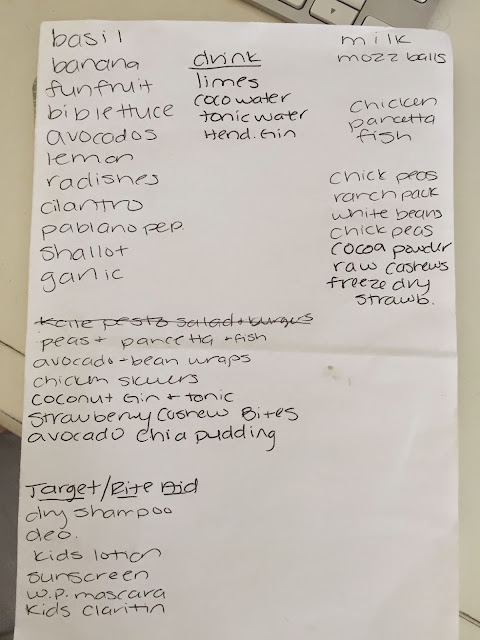 basil
banana
funfruit
bib lettuce
avocados
lemon
radishes
cilantro
pablano pep.
shallot
garlic
drink
limes
coco water
tonic water
Hend. Gin
milk
mozz balls
chicken
pancetta
fish
chick peas
ranch pack
white beans
chick peas
cocoa powder
raw cashews
freeze dry
strawb.
kale pesto salad + burgers
peas + pancetta + fish
avocado - bean wraps
chicken skewers
coconut Gin + tonic
Strawberry Cashew Bites
avocado chia pudding
Target/Rite Aid
dry shampoo
deo.
kids lotion
sunscreen
w.p. mascara
kids claritin